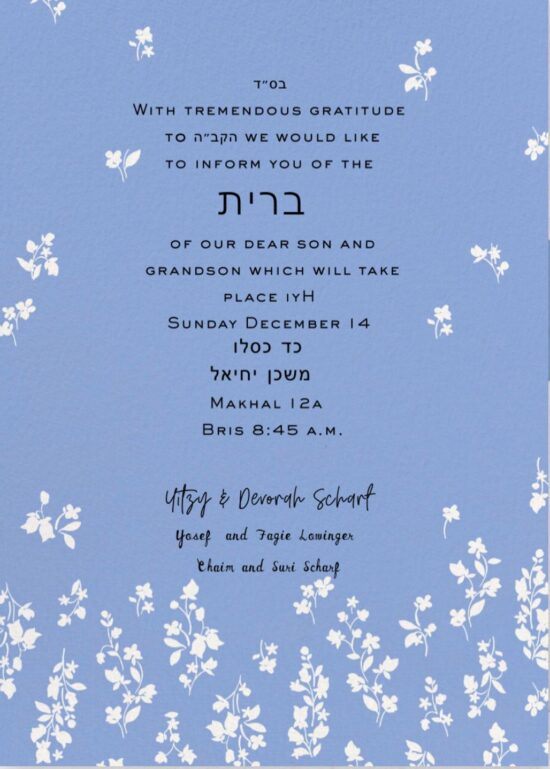 בס״ד
With tremendous gratitude
to הקב״ה we would like
to inform you of the
ברית
of our dear son and
grandson which will take
place iyH
Sunday December 14
כד כסלו
משכן יחיאל
Makhal 12a
Bris 8:45 a.m.
Yitzy & Devorah Scharf
Yosef and Fagie Lowinger
Chaim and Suri Scharf